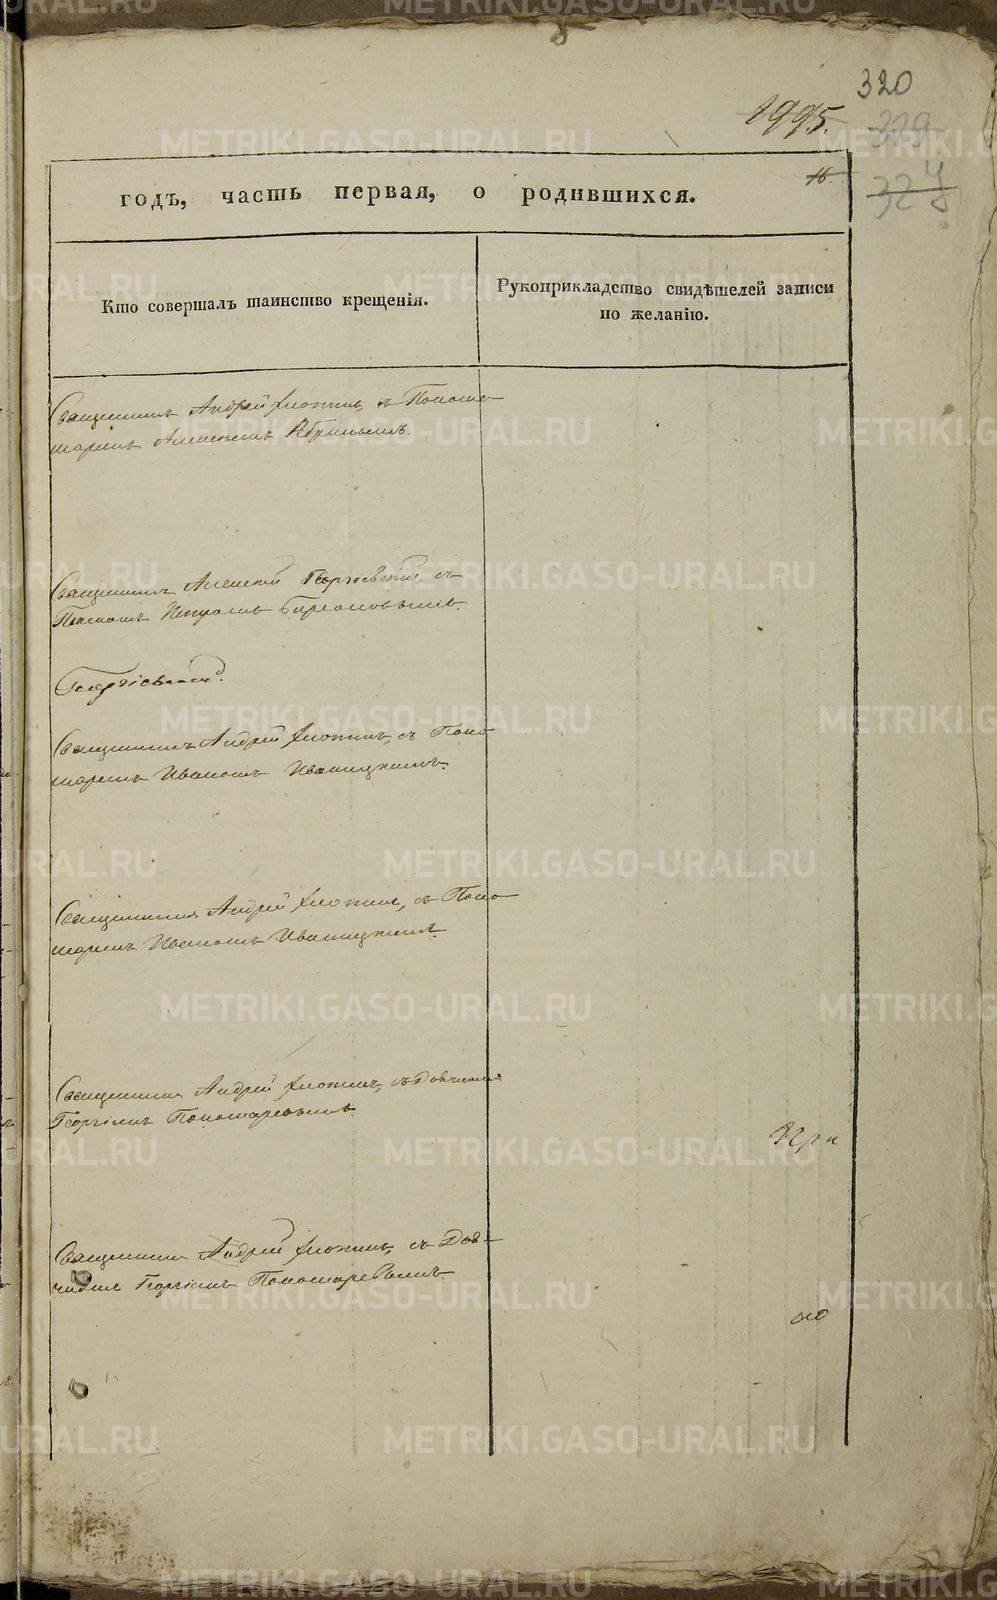 320
1995.
329
324
16.
годъ, часть первая, о родившихся.
Кто совершалъ таинство крещенія.
Рукоприкладство свидѣтелей записи
по желанію.
Священникъ Андрей с Понома-
маремъ Алексѣемъ
Священникъ Алексѣй Георгіевскій, съ
Петромъ
Георгіевскій.
Священникъ Андрей съ Поно-
маремъ Иваномъ Иваницкимъ.
Священникъ Андрей съ Поно-
маремъ Иваномъ Иваницкимъ.
Священникъ Андрей съ Дьячкомъ
Георгіемъ Пономаревымъ
Священникъ Андрей съ Дья-
чкомъ Георгіемъ Пономаревымъ
METRIKI.GASO-URAL.RU